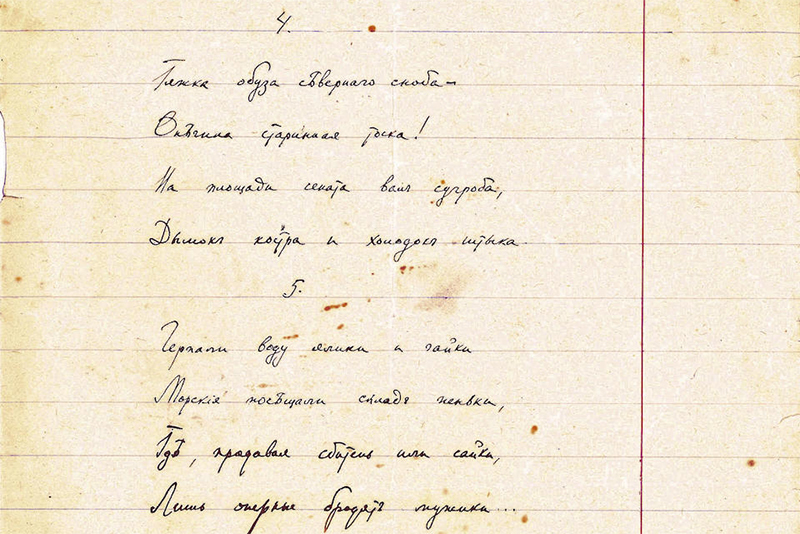 4.
Тяжка обуза сѣвернаго сноба —
Онѣгина старинная тоска!
На площади сената валъ сугроба,
Дымокъ костра и холодокъ штыка.
5.
Черпали воду ялики и чайки
Морскія посѣщали складъ пеньки,
Гдѣ, продавая сбитень или сайки,
Лишь оперные бродятъ мужики...